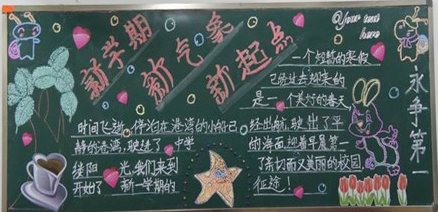 新学期
新气象
新起点
Your text
here
一个短暂的寒假
已经过去迎来的
是一个美好的春天
时间飞逝，停泊在港湾的小船已
静的港湾，驶进了
缕阳光，我们来到
开始了新一学期的
经出航，驶出了平
的海面，迎着早晨第一
了亲切而又美丽的校园
征途！
永争第一